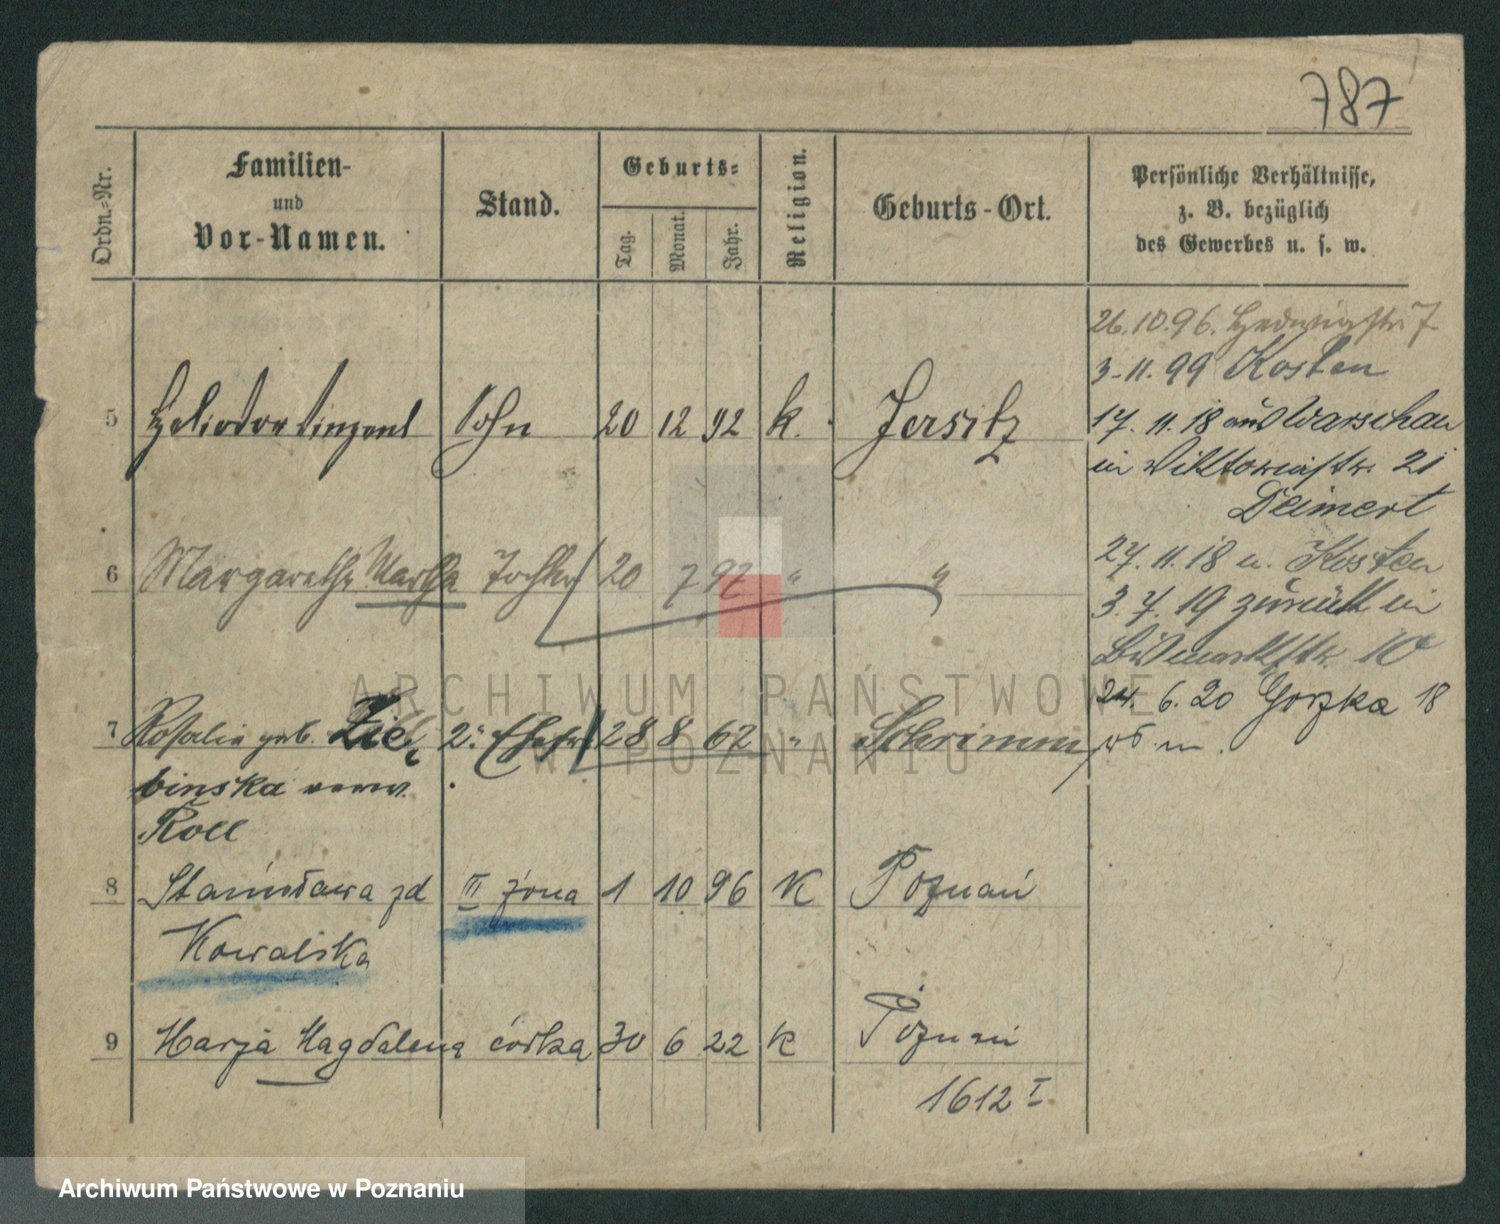 787
Ordn.-Nr.
Familien-
und
Vor-Namen.
Stand.
Geburts-
Tag.
Monat.
Jahr.
Religion.
Geburts-Ort.
Persönliche Verhältnisse,
z. B. bezüglich
des Gewerbes u. s. w.
26.10.96. Hedwigstr. 7
3.11.99 Kosten
17. 11. 18 aus Warschau
in Viktoriastr. 21
Deimert
27. 11. 18 n. Kosten
3. 7. 19 zurück in
Bismarckstr. 10
24. 6. 20 Gorzka 18
5 Heliodor Vinzent Sohn 20 12 92 k. Jersitz
6 Margarethe Martha Tochter 20 7 97 " "
7 Rosalie geb. Zie 2. Ehefr 28 8 62 " Schrimm
binska verw.
Roll
8 Stanisława zd III żona 1 10 96 K Poznań
Kowalska
9 Marja Magdalena córka 30 6 22 k Poznań
1612 I
ARCHIWUM PAŃSTWOWE
W POZNANIU
Archiwum Państwowe w Poznaniu